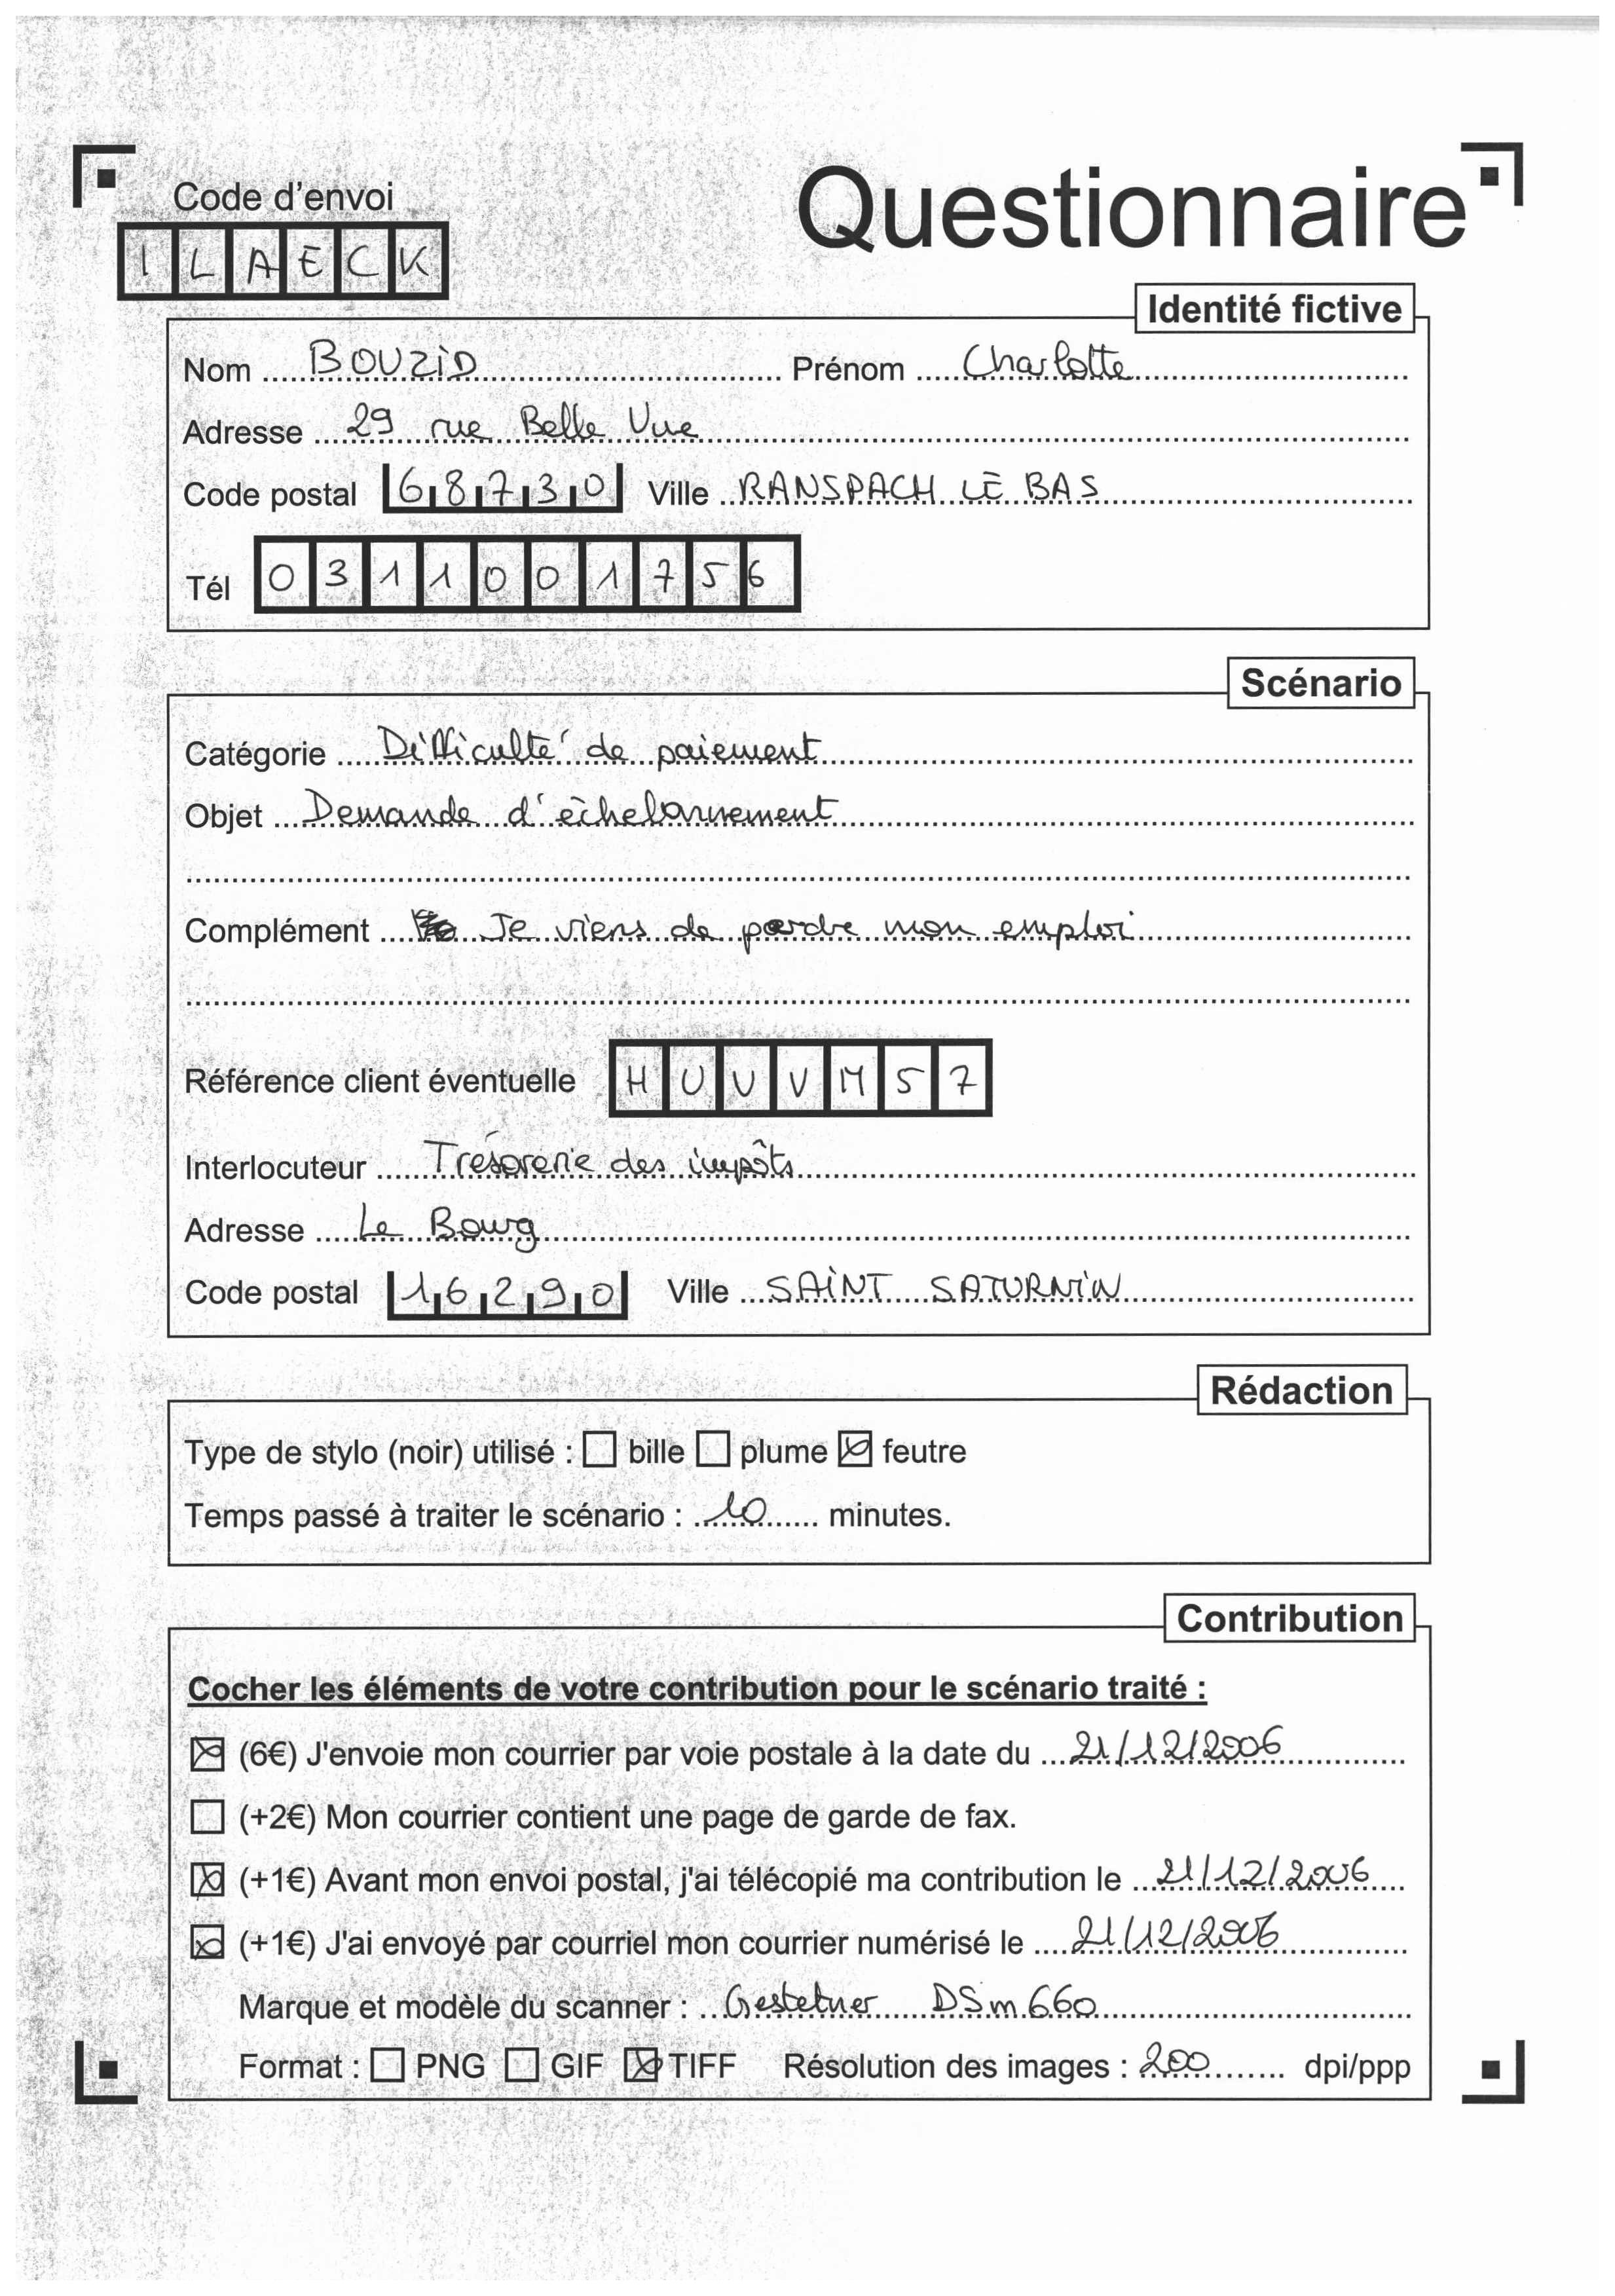 Code d'envoi
ILAECK
Questionnaire
Identité fictive
Nom BOUZID Prénom Charlotte
Adresse 29 rue Belle Vue
Code postal 68730 Ville RANSPACH LE BAS
Tél 0311001756
Scénario
Catégorie Difficulté de paiement
Objet Demande d'échelonnement
Complément Je viens de perdre mon emploi
Référence client éventuelle HUUVM57
Interlocuteur Trésorerie des impôts
Adresse Le Bourg
Code postal 16290 Ville SAINT SATURNIN
Rédaction
Type de stylo (noir) utilisé : bille plume feutre
Temps passé à traiter le scénario : 10 minutes.
Contribution
Cocher les éléments de votre contribution pour le scénario traité :
(6€) J'envoie mon courrier par voie postale à la date du 21/12/2006
(+2€) Mon courrier contient une page de garde de fax.
(+1€) Avant mon envoi postal, j'ai télécopié ma contribution le 21/12/2006
(+1€) J'ai envoyé par courriel mon courrier numérisé le 21/12/2006
Marque et modèle du scanner : Gestetner DSm660
Format : PNG GIF TIFF Résolution des images : 200 dpi/ppp